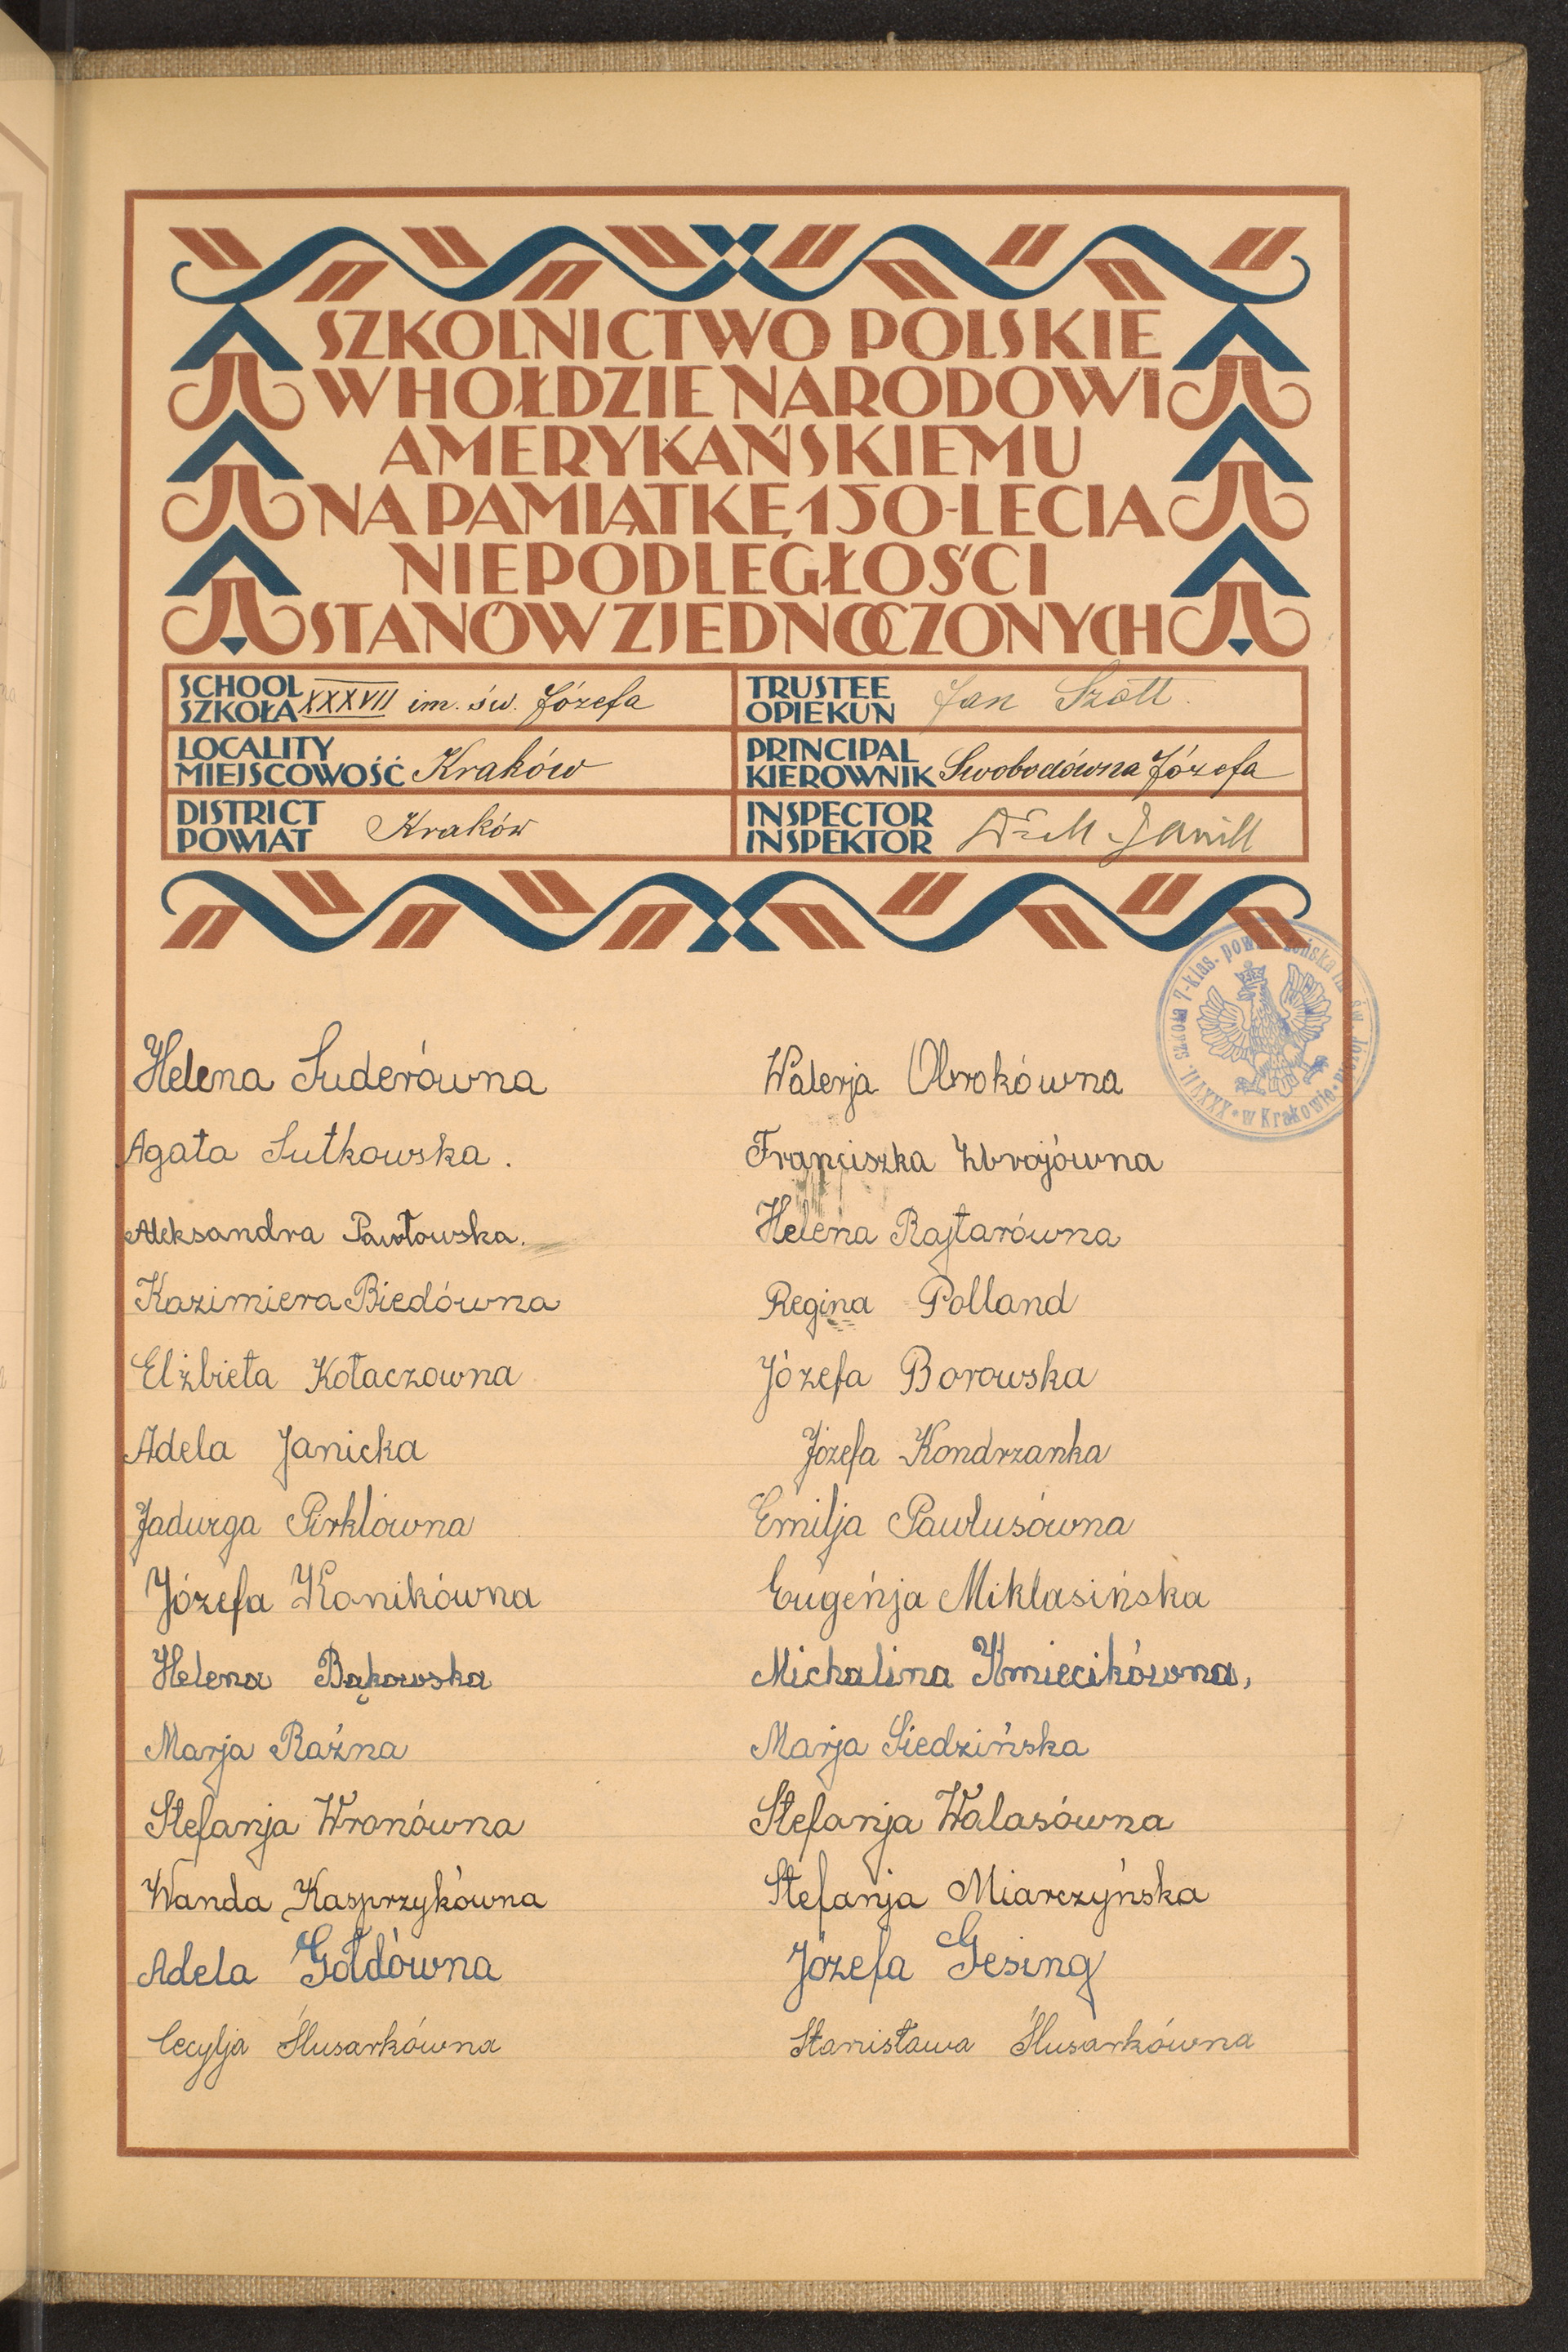 SZKOLNICTWO POLSKIE
W HOŁDZIE NARODOWI
AMERYKAŃSKIEMU
NA PAMIĄTKĘ 150-LECIA
NIEPODLEGŁOŚCI
STANÓW ZJEDNOCZONYCH
SCHOOL
SZKOŁA XXXVII im. św. Józefa
TRUSTEE
OPIEKUN Jan Szott
LOCALITY
MIEJSCOWOŚĆ Kraków
PRINCIPAL
KIEROWNIK Swobodówna Józefa
DISTRICT
POWIAT Kraków
INSPECTOR
INSPEKTOR
XXXVII. szkoła 7-klas. w Krakowie
Helena Suderówna
Agata Sutkowska.
Aleksandra Pawłowska.
Kazimiera Biedówna
Elżbieta Kołaczowna
Adela Janicka
Jadwiga Pirklówna
Józefa Konikówna
Helena Bąkowska
Marja Raźna
Stefanja Wronówna
Wanda Kasprzykówna
Adela Gołdówna
Cecylja Ślusarkówna
Walerja Obrokówna
Franciszka Zbrojówna
Helena Rajtarówna
Regina Polland
Józefa Borowska
Józefa Kondrzanka
Emilja Pawlusówna
Eugeńja Miklasińska
Michalina Kmiecikówna,
Marja Siedzińska
Stefanja Walasówna
Stefanja Miarczyńska
Józefa Gesing
Stanisława Ślusarkówna